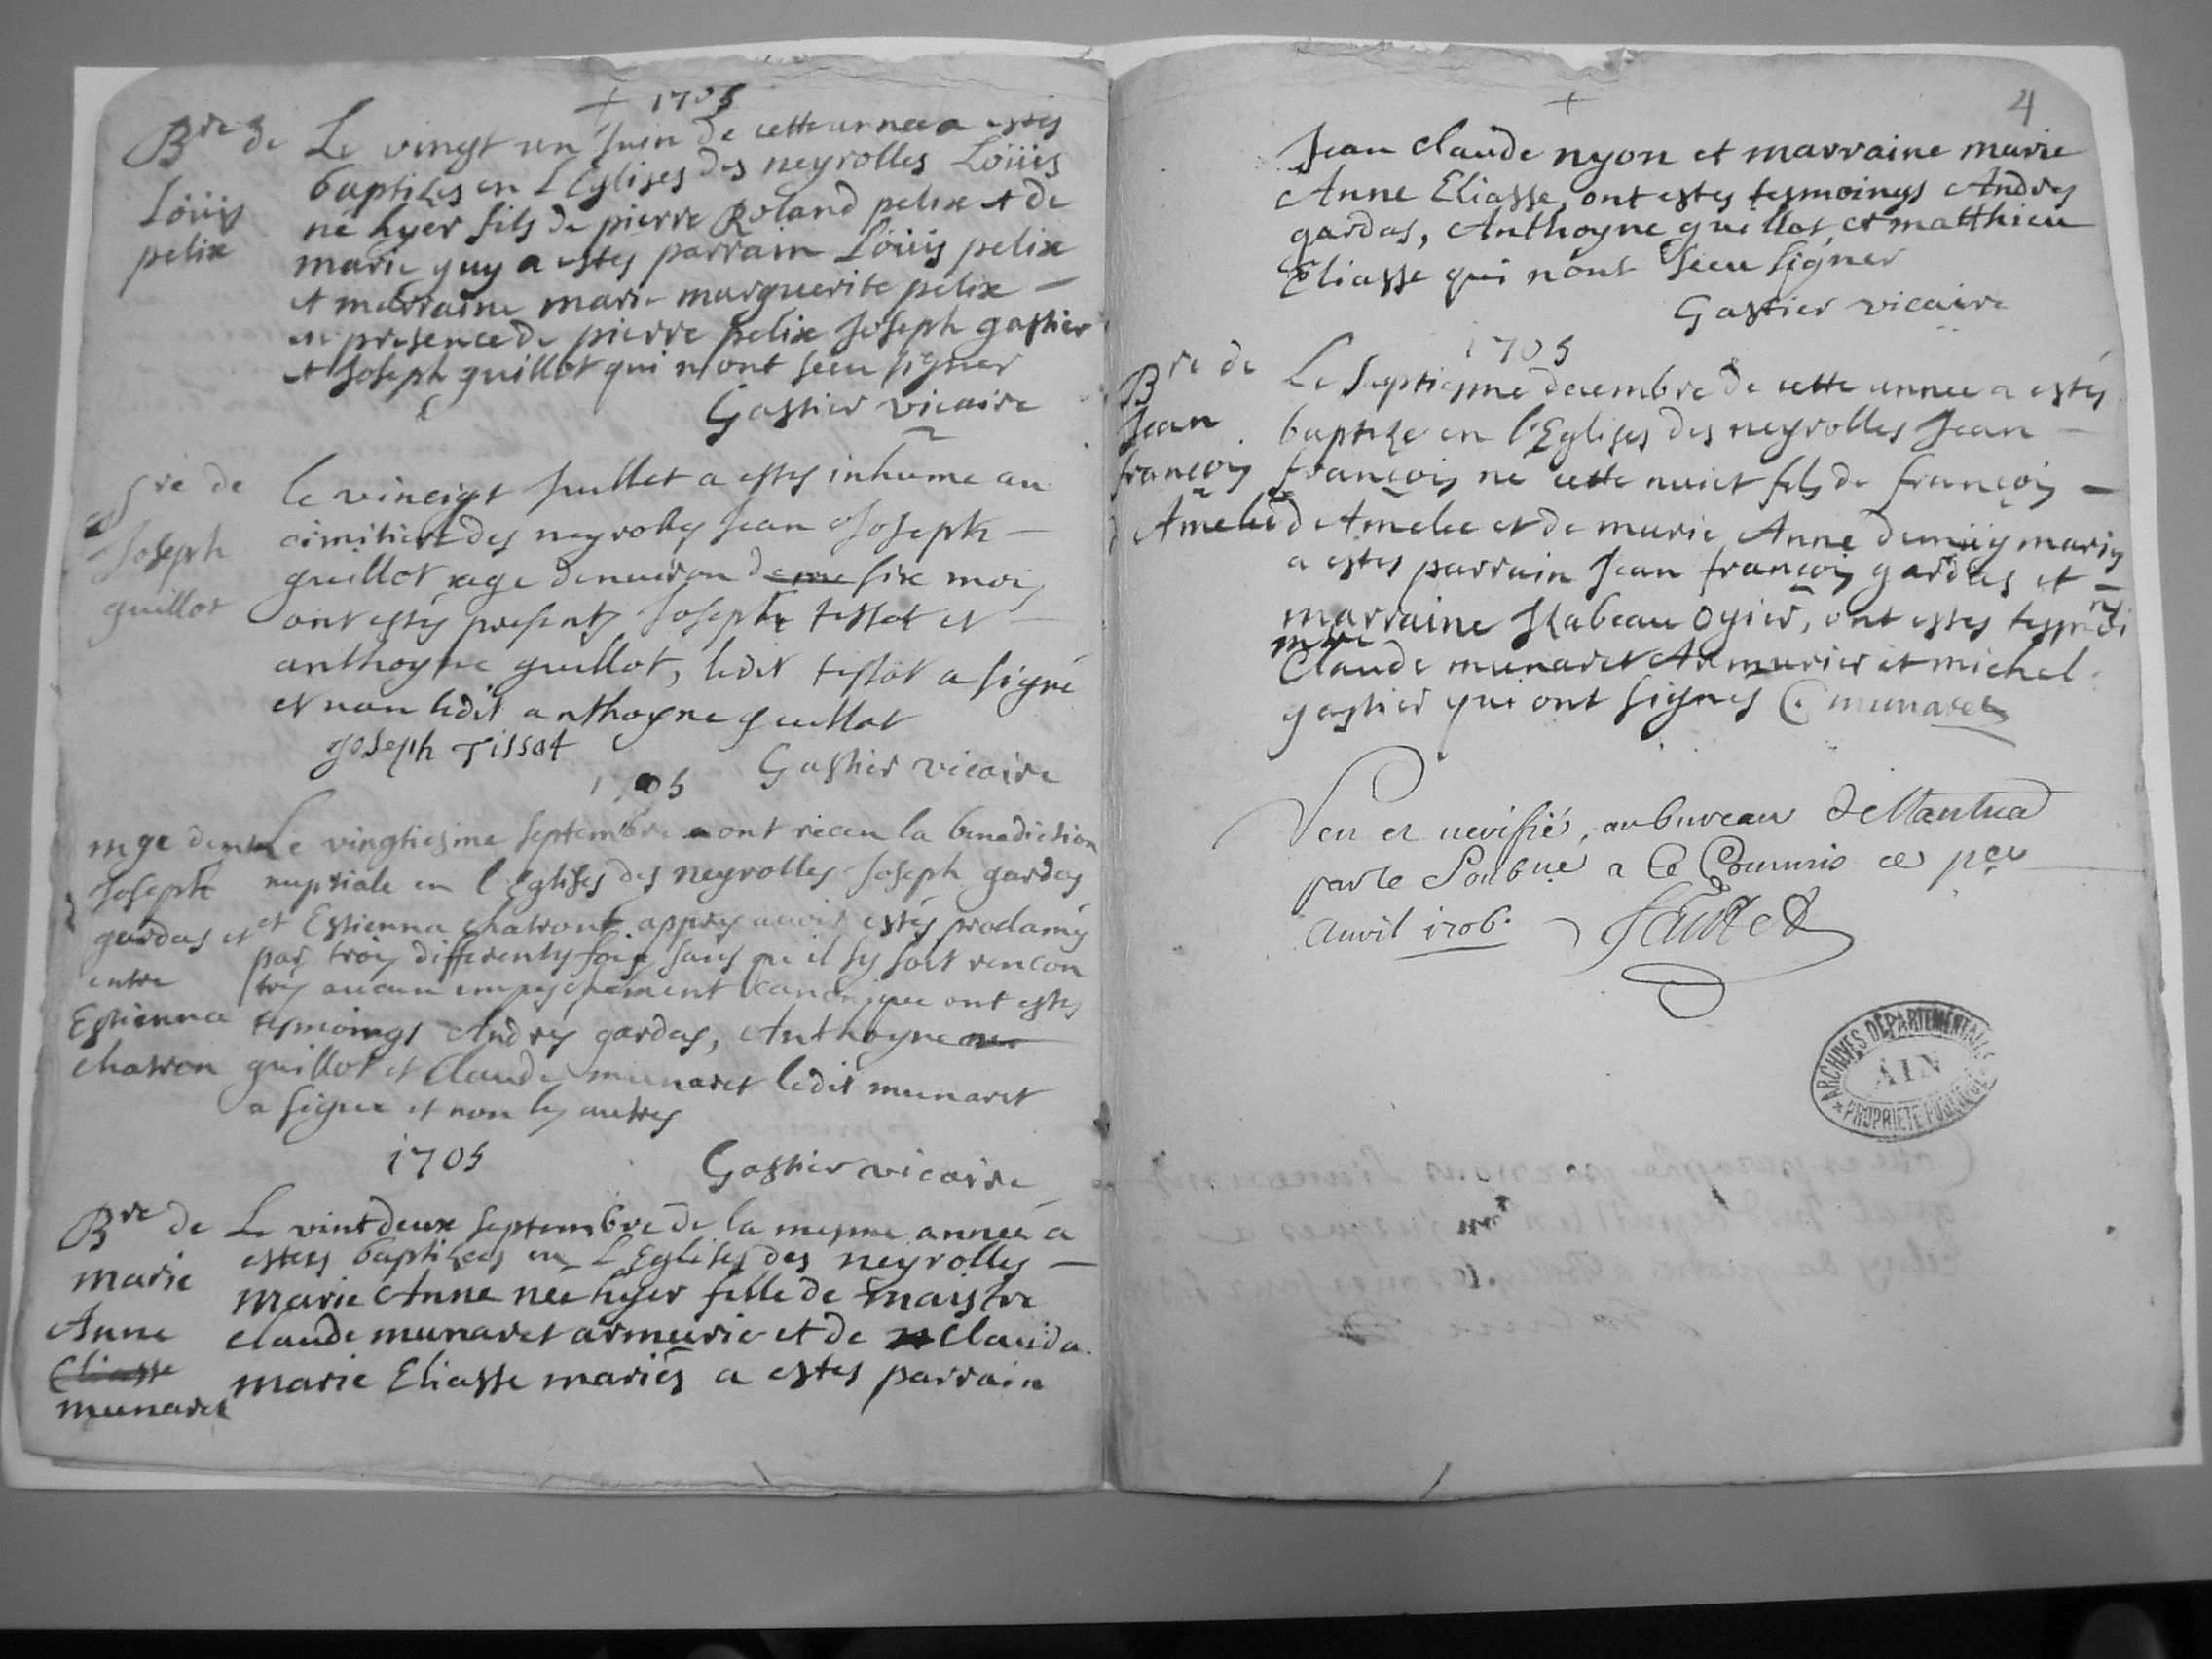 + 1705
Bre de
Loüis
pelix
Le vingt un Juin de cette annee a estes
baptizes en L Eglises des neyrolles Loüis
né hyer fils de pierre Roland pelix et de
marie guy a estes parrain Loüis pelix
et marraine marie marguerite pelix —
en presence de pierre pelix Joseph gastier
et Joseph guillot qui n'ont sceu signer
Gastier vicaire
Sre de
Joseph
guillot
le vincigt Juillet a estes inhume au
cimitiere des neyrolles Jean Joseph —
guillot age denuiron six mois
ont estés presents Joseph tissot et —
anthoyne guillot, ledit tissot a signé
et non ledit anthoyne guillot
Joseph Tissot
Gastier vicaire
1705
mge
Joseph
gardas et
entre
Estienna
chatron
Le vingtiesme septembre ont receu la benediction
nuptiale en l Eglises des neyrolles Joseph gardas
et Estienna chatront appres auoir estés proclamés
par trois differents fois sans qu il sy soit rencon
trés aucun empeschement canonique ont estes
tesmoings Andres gardas, Anthoyne
guillot et Claude munaret ledit munaret
a signee et non les autres
1705
Gastier vicaire
Bre de
marie
Anne
Eliasse
munaret
Le vint deux septembre de la mesme année a
estees baptizees en L Eglises des neyrolles —
marie Anne née hyer fille de maistre
claude munaret armurie et de Clauda
marie Eliasse mariés a estes parrain
+
4
Jean claude nyon et marraine marie
Anne Eliasse, ont estes tesmoings Andres
gardas, Anthoyne guillot et matthieu
Eliasse qui n'ont sceu signer
Gastier vicaire
1705
Bre de
Jean
françois
d Amelie
Le septiesme decembre de cette annee a estés
baptize en l'Eglises des neyrolles Jean —
françois né cette nuict fils de françois —
de Amelee et de marie Anne mariés
a estes parrain Jean françois gardas et —
marraine Isabeau ogier, ont estes
mtre
Claude munaret Armurier et michel
gastier qui ont signés C. munaret
Veu et verifié, au bureau de Nantua
par le Soubne a Ce Commis ce per
Auril 1706.
ARCHIVES DEPARTEMENTALES
AIN
* PROPRIETE PUBLIQUE *